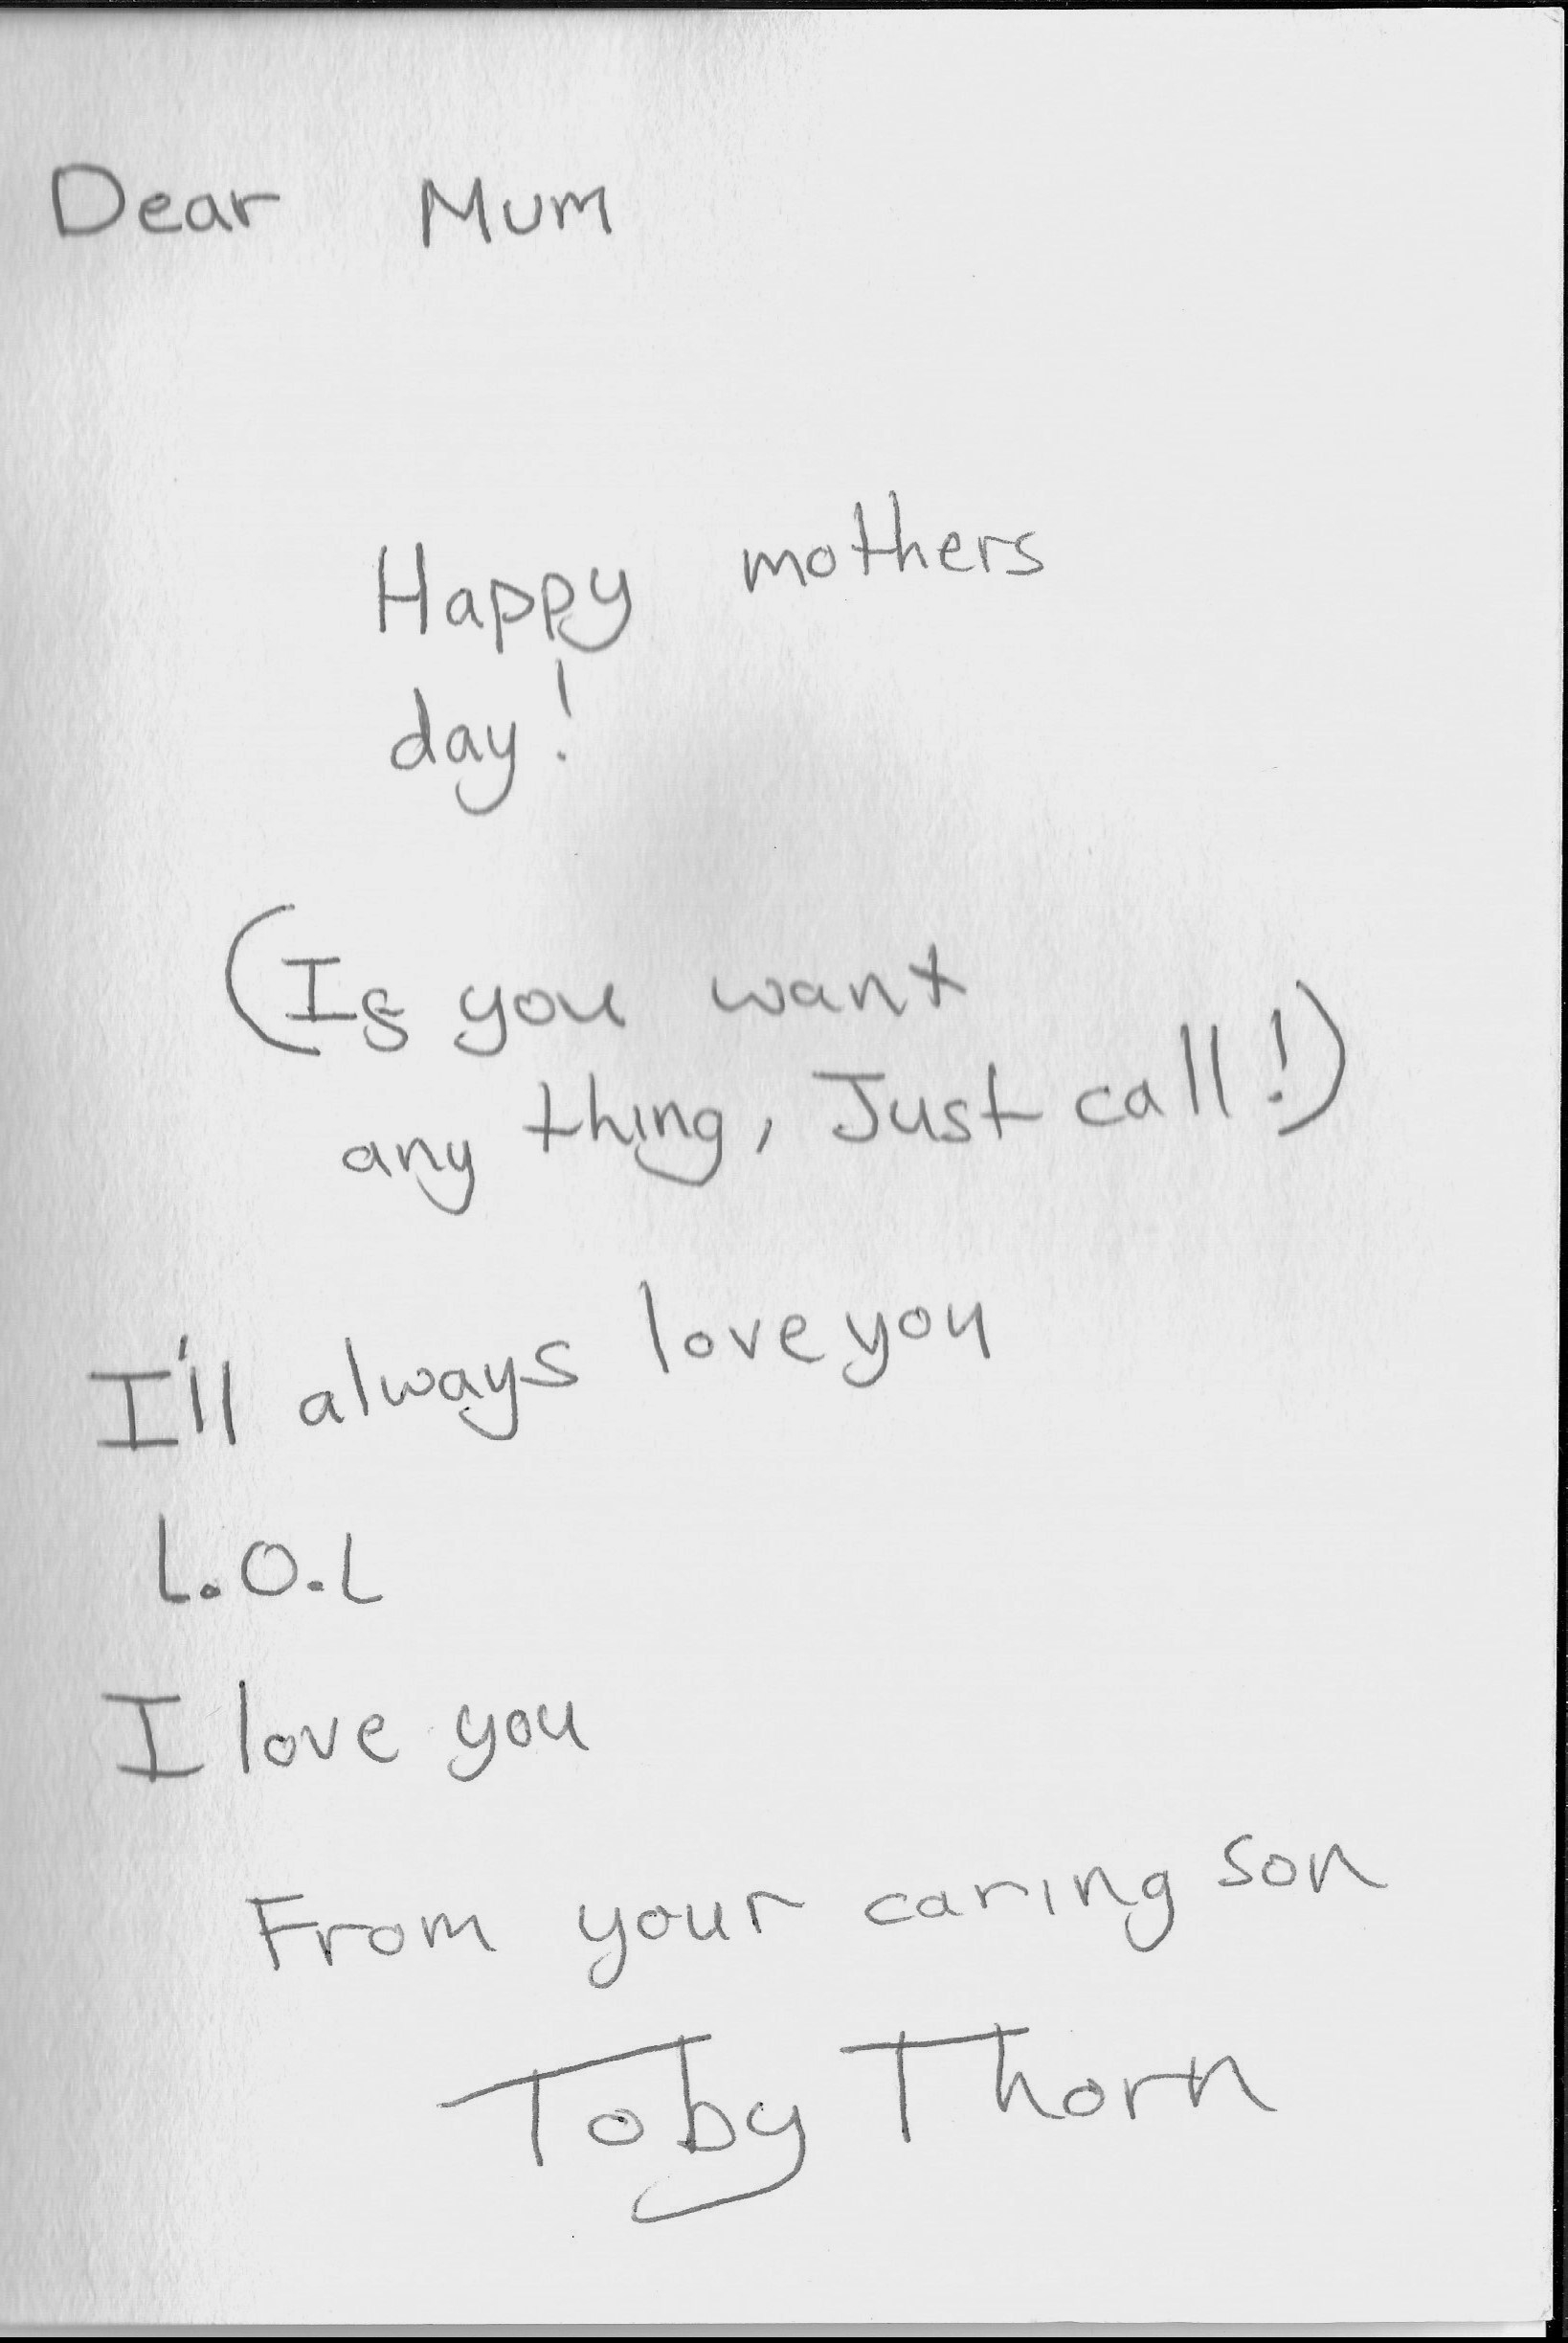 Dear Mum
Happy mothers
day!
(Is you want
any thing, Just call!)
I'll always love you
L.O.L
I love you
From your caring son
Toby Thorn